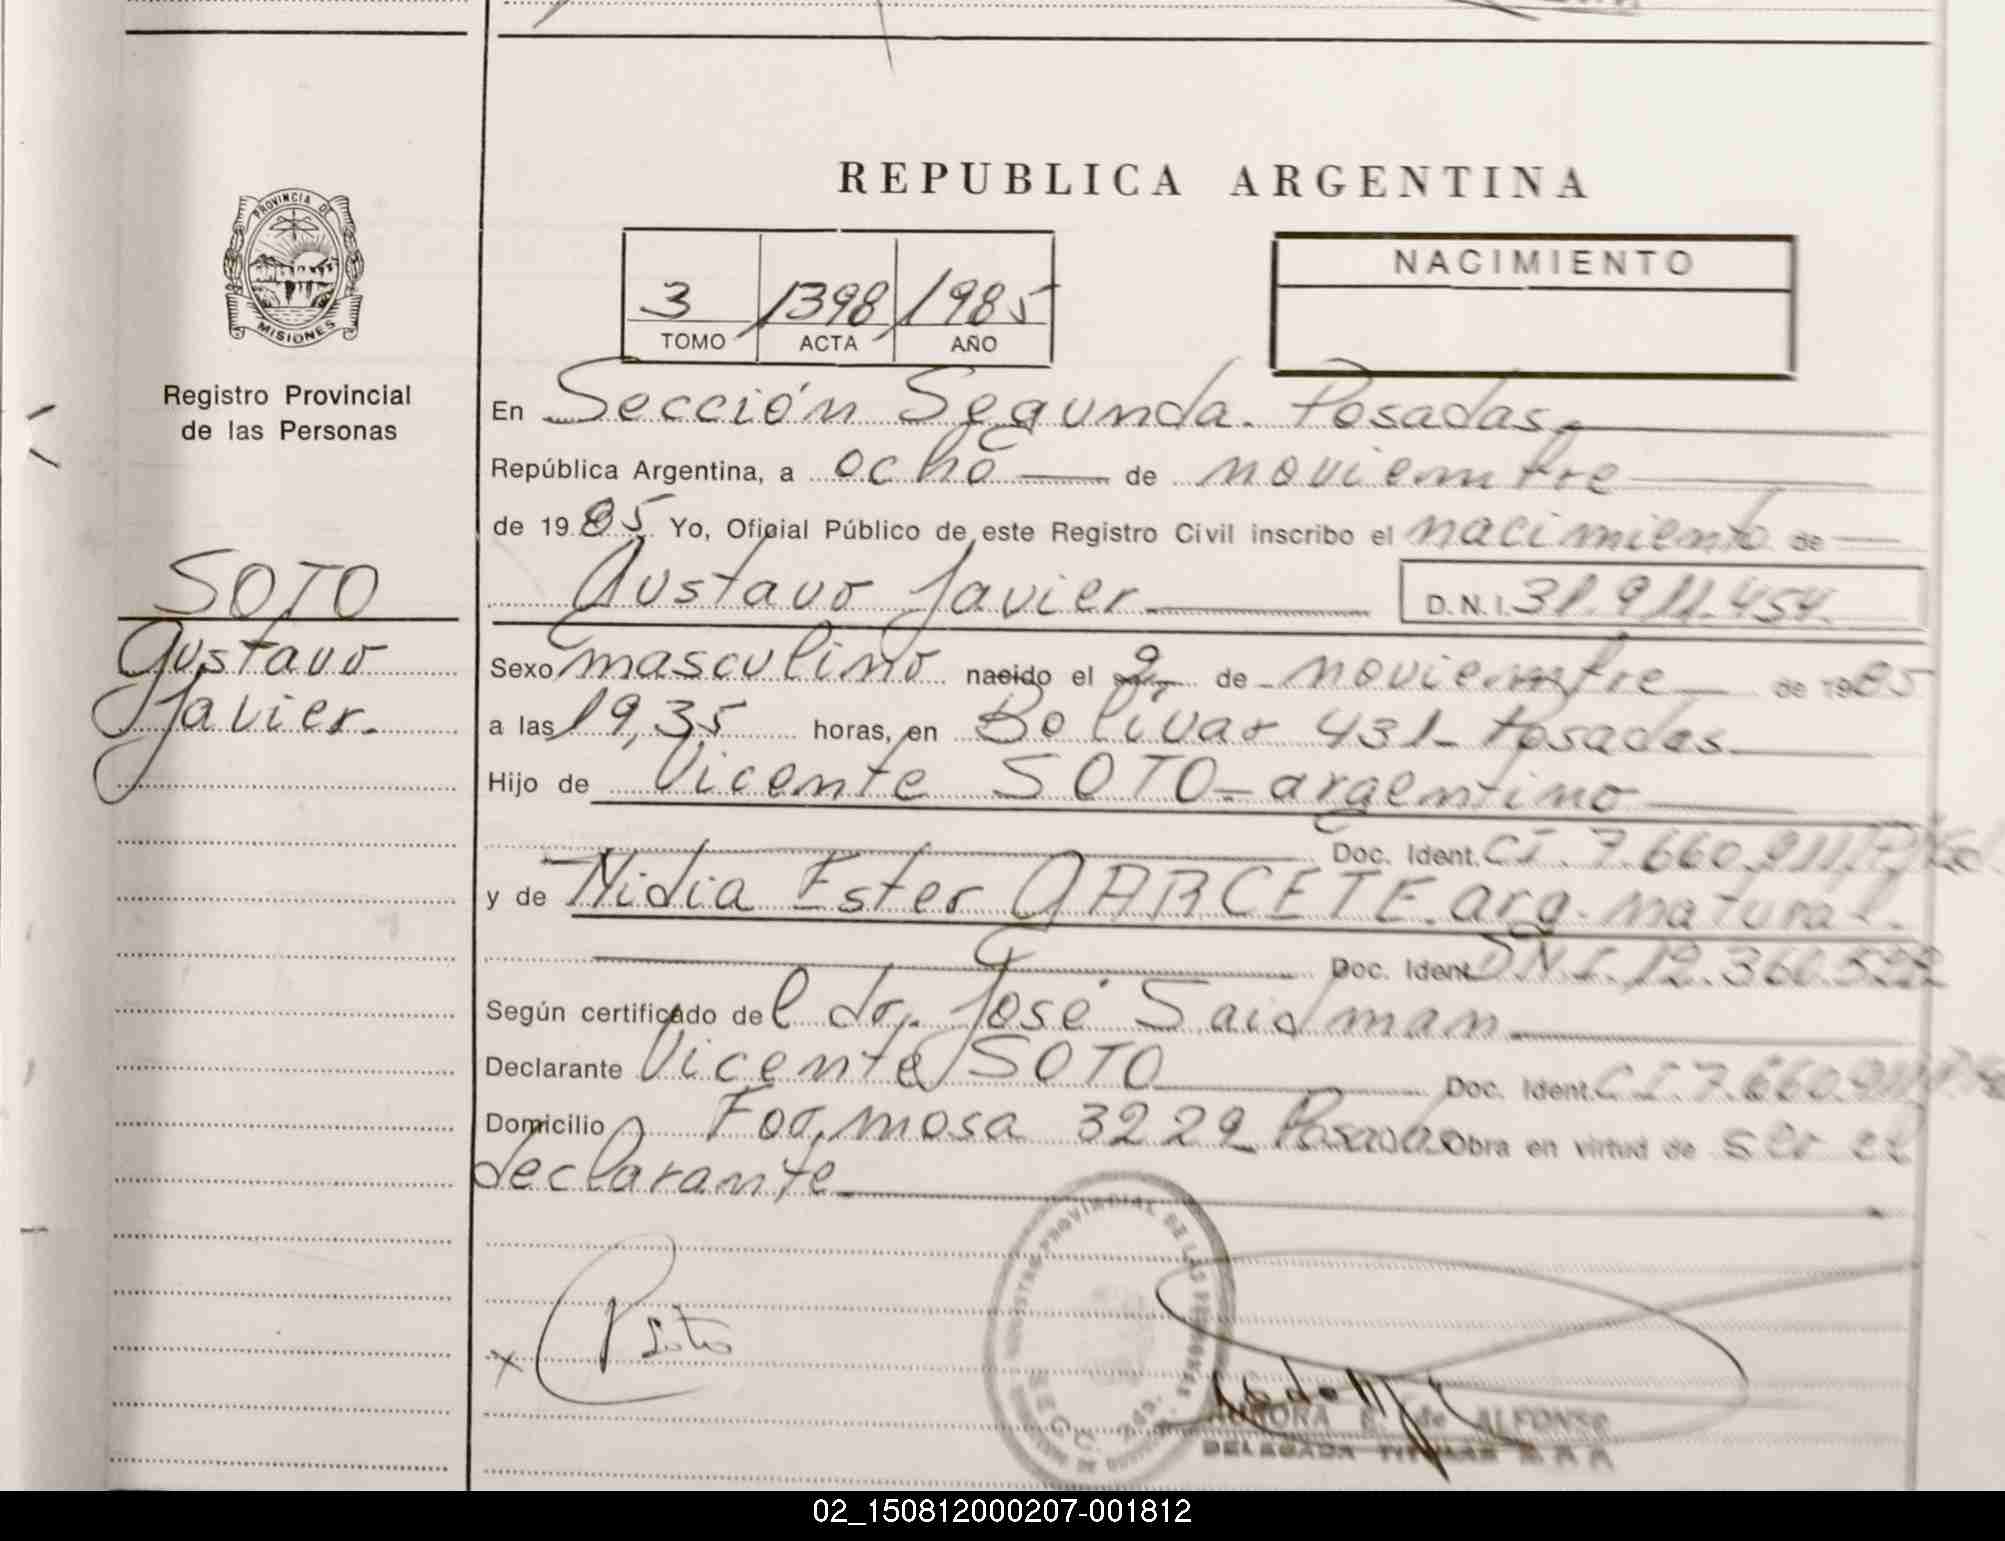 REPUBLICA ARGENTINA
PROVINCIA DE
MISIONES
Registro Provincial
de las Personas
3 1398 1985
TOMO ACTA AÑO
NACIMIENTO
En Sección Segunda. Posadas.
República Argentina, a ocho de noviembre
de 1985 Yo, Oficial Público de este Registro Civil inscribo el nacimiento de
Gustavo Javier D.N.I. 31.911.454.
SOTO
Gustavo
Javier.
Sexo masculino nacido el 2 de noviembre de 1985
a las 19,35 horas, en Bolivar 431- Posadas
Hijo de Vicente SOTO - argentino
Doc. Ident. CI. 7.660.911
y de Nidia Ester GARCETE. arg. natural.
Doc. Ident. D.N.I. 12.360.522
Según certificado del dr. José Saidman
Declarante Vicente SOTO Doc. Ident. CI 7.660.911
Domicilio Formosa 3229 Posadas Obra en virtud de ser el
declarante
REGISTRO PROVINCIAL DE LAS PERSONAS
SECC.
x Soto
E. de ALFONSO
DELEGADA TITULAR
02_150812000207-001812